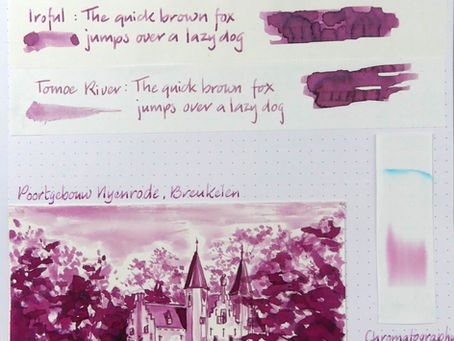 Iroful : The quick brown fox
jumps over a lazy dog
Tomoe River : The quick brown fox
jumps over a lazy dog
Poortgebouw Nyenrode, Breukelen
Chromatographi